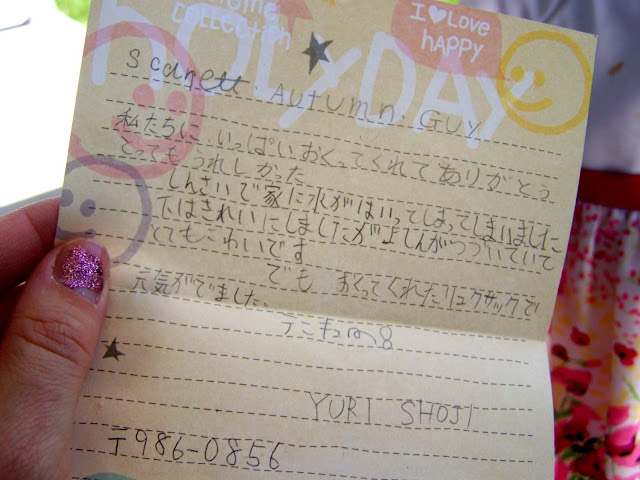 COLLECTION
I ♥ LOVE
hAPPY
hOLyDAY
Scanett. Autumn. Guy
私たちに いっぱいおくってくれてありがとう
とってもうれしかった
しんさいで家に水がはいってしまってしまいました
下はきれいにしましたがよしんがつづいていて
とてもこわいです
でも おくってくれたリュクサックで
元気がでました.
YURI SHOJI
〒986-0856